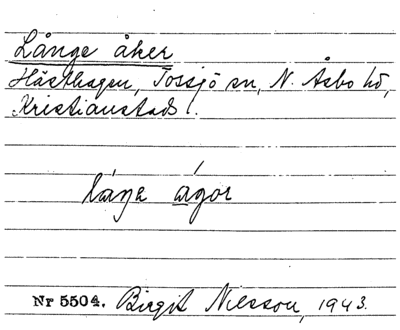 Långe åker
Hästhagen, Tossjö sn, N. Åsbo hd,
Kristianstads l.
låŋa ågor
Nr 5504. Birgit Nilsson, 1943.